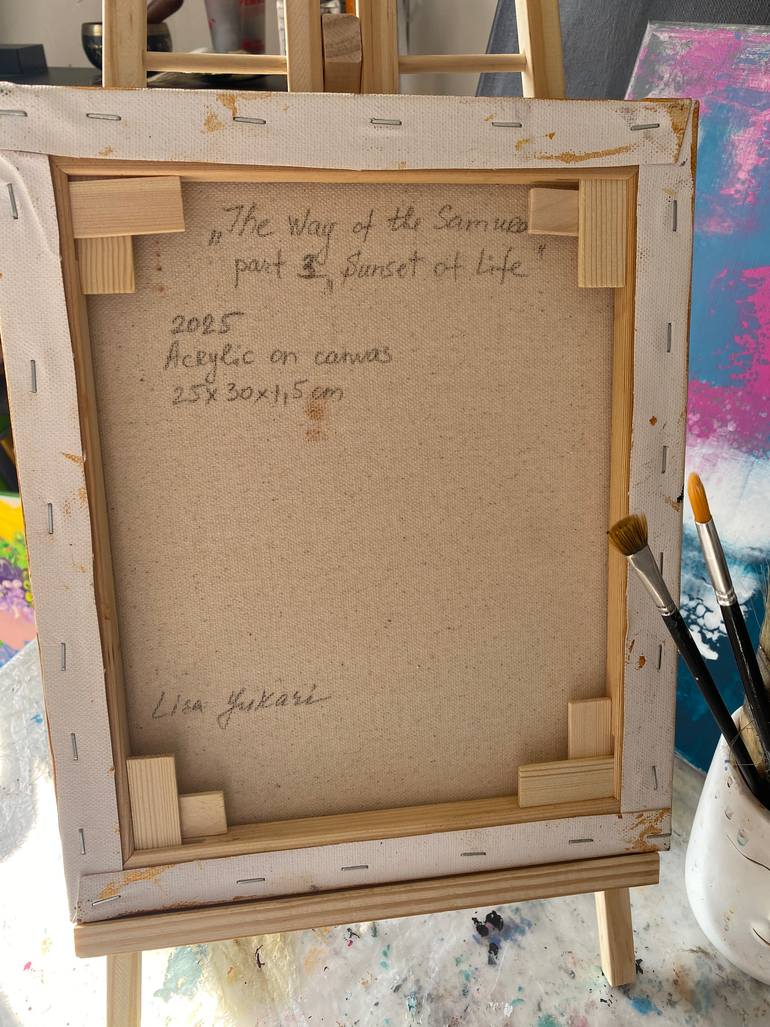 „The Way of the Samura
part 1, „Sunset of Life"
2025
Acrylic on canvas
25x30x1,5 cm
Lisa Yukari